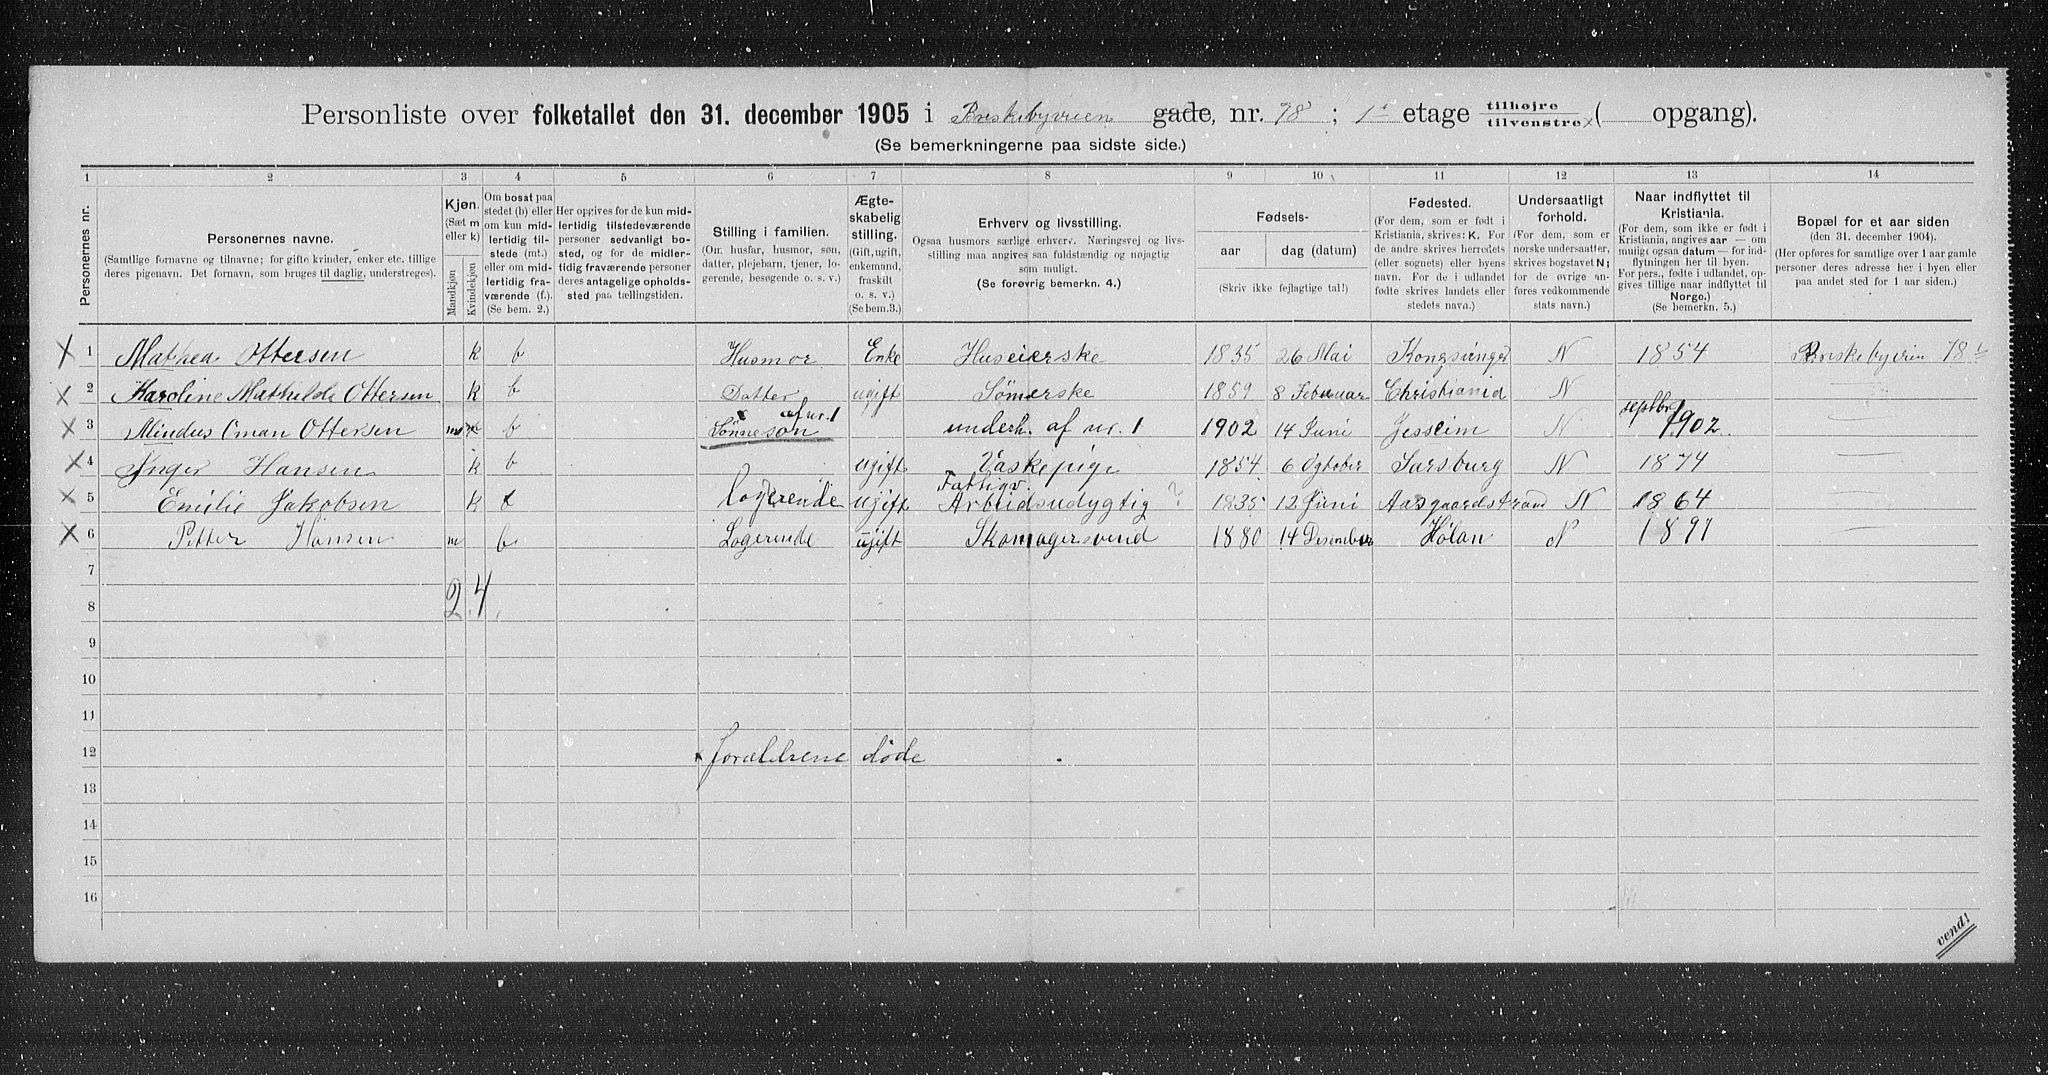 Personliste over folketallet den 31. december 1905 i Briskebyveien gade, nr. 78 ; 1ste etage tilhøjre / tilvenstre × ( opgang).
(Se bemerkningerne paa sidste side.)
1 2 3 4 5 6 7 8 9 10 11 12 13 14
Personernes nr.
Personernes navne.
(Samtlige fornavne og tilnavne; for gifte kvinder, enker etc. tillige
deres pigenavn. Det fornavn, som bruges til daglig, understreges).
Kjøn.
(Sæt m
eller k)
Mandkjøn
Kvindekjøn
Om bosat paa
stedet (b) eller
om kun mid-
lertidig til-
stede (mt.)
eller om mid-
lertidig fra-
værende (f.).
(Se bem. 2.)
Her opgives for de kun mid-
lertidig tilstedeværende
personer sedvanlig bo-
sted, og for de midler-
tidig fraværende personer
deres antagelige opholds-
sted paa tællingstiden.
Stilling i familien.
(Om husfar, husmor, søn,
datter, plejebarn, tjener, lo-
gerende, besøgende o. s. v.)
Ægte-
skabelig
stilling.
(Gift, ugift,
enkemand,
fraskilt
o. s. v.)
(Se bem.3.)
Erhverv og livsstilling.
Ogsaa husmors særlige erhverv. Næringsvej og livs-
stilling maa angives saa fuldstændig og nøjagtig
som muligt.
(Se forøvrig bemerkn. 4.)
Fødsels-
aar dag (datum)
(Skriv ikke fejlagtige tal!)
Fødested.
(For dem, som er født i
Kristiania, skrives: K. For
de andre skrives herredets
(eller sognets) eller byens
navn. For de i udlandet
fødte skrives landets eller
stedets navn.)
Undersaatligt
forhold.
(For dem, som er
norske undersaatter,
skrives bogstavet N;
for de øvrige an-
føres vedkommende
stats navn.)
Naar indflyttet til
Kristiania.
(For dem, som ikke er født i
Kristiania, angives aar — om
mulig ogsaa datum — for ind-
flytningen her til byen.
For pers., fødte i udlandet, op-
gives tillige naar indflyttet til
Norge.)
(Se bemerkn. 5.)
Bopæl for et aar siden
(den 31. december 1904).
(Her opføres for samtlige over 1 aar gamle
personer deres adresse her i byen eller
paa andet sted for 1 aar siden.)
× 1 Mathea Ottersen k b Husmor Enke Huseierske 1835 26 Mai Kongsvinger N 1854 Briskebyveien 78 1
× 2 Karoline Mathilde Ottersen k b Datter ugift Sømerske 1859 8 Februar Christiania N
× 3 Mindus Oman Ottersen m b × Sønneson af nr. 1 underh. af nr. 1 1902 14 Juni Jesseim N septbr 1902
× 4 Inger Hansen k b ugift Vaskepige 1854 6 Ogtober Sarsburg N 1874
× 5 Emilie Jakobsen k b logerende ugift Fattigv. Arbeidsudygtig ? 1835 12 Juni Aasgaardstrand N 1864
× 6 Petter Hansen m b Logerende ugift Skomagersvend 1880 14 Desember Hølan N 1897
7
8 2 4
9
10
11
12 × forældrene døde
13
14
15
16
vend!